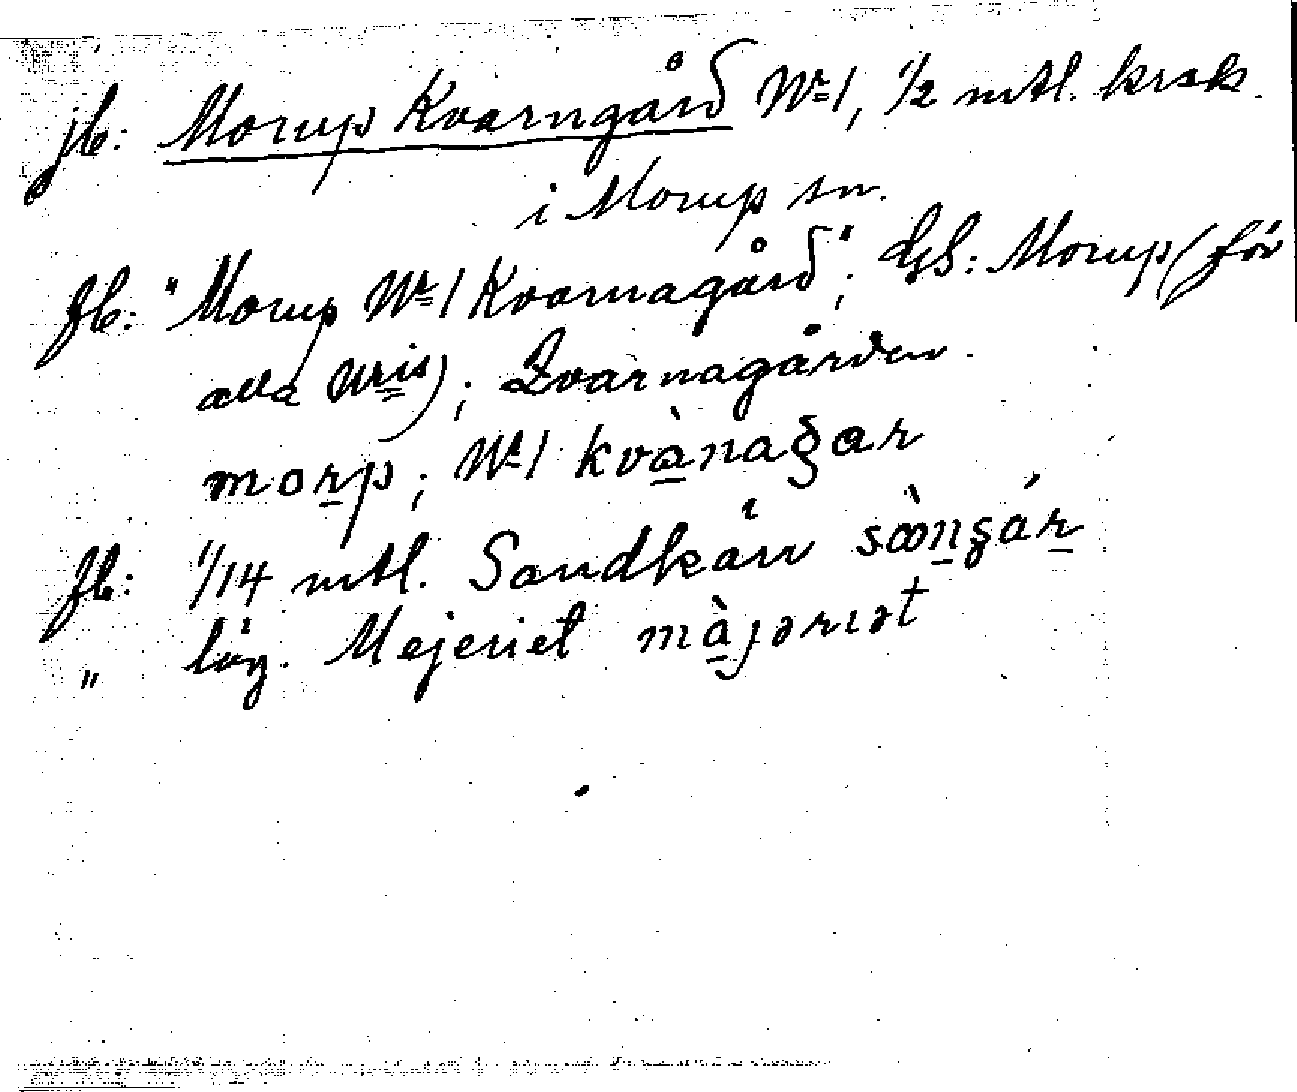 jb: Morup Kvarngård Nr 1, 1/2 mtl. krsk.
i Morup sn.
fb: "Morup Nr 1 Kvarnagård"; GS: Morup (för
alla Nris); Qvarnagården.
morp; Nr 1 kvànagar
fb: 1/14 mtl. Sandkärr
" läg. Mejeriet màjəriət